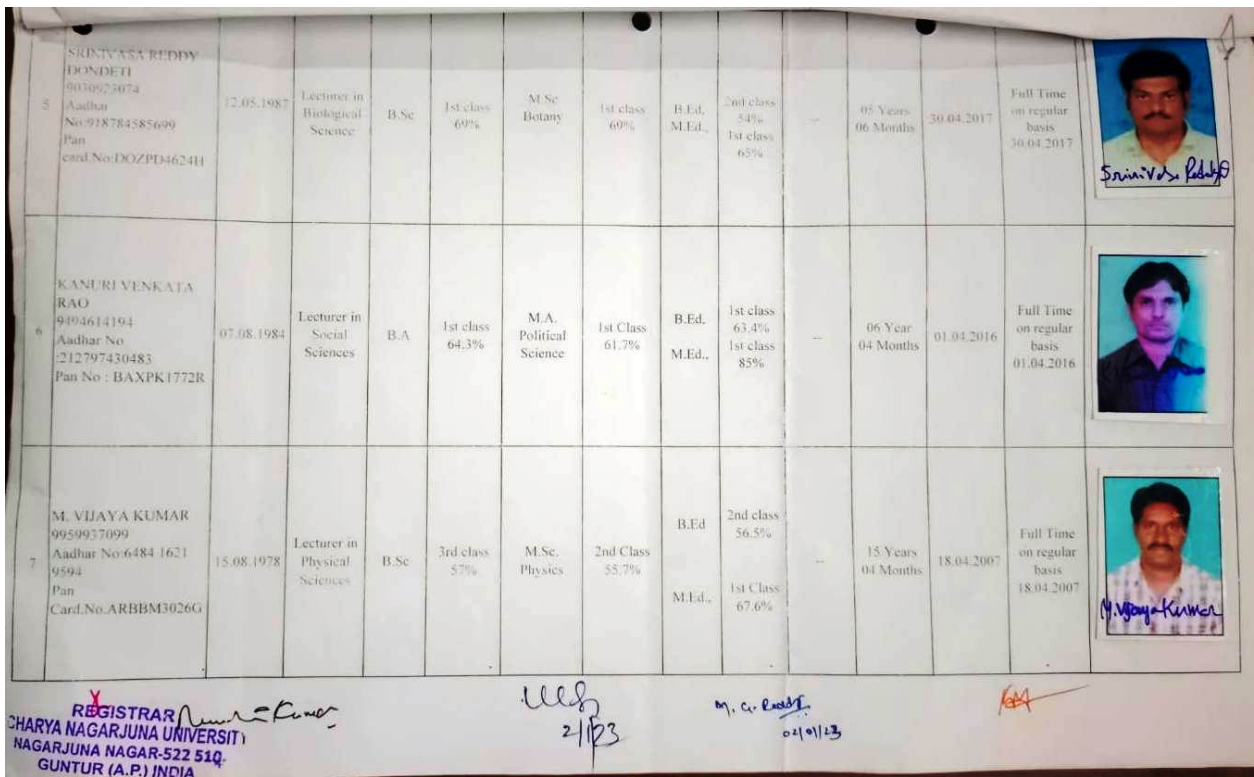 5
SRINIVASA REDDY
DONDETI
9030923074
Aadhar
No:918784585699
Pan
card.No:DOZPD4624H
12.05.1987
Lecturer in
Biological
Science
B.Sc
1st class
69%
M.Sc
Botany
1st class
69%
B.Ed,
M.Ed.,
2nd class
54%
1st class
65%
--
05 Years
06 Months
30.04.2017
Full Time
on regular
basis
30.04.2017
Srinivasa Reddy D
6
KANURI VENKATA
RAO
9494614194
Aadhar No
:212797430483
Pan No : BAXPK1772R
07.08.1984
Lecturer in
Social
Sciences
B.A
1st class
64.3%
M.A.
Political
Science
1st Class
61.7%
B.Ed.
M.Ed.,
1st class
63.4%
1st class
85%
--
06 Year
04 Months
01.04.2016
Full Time
on regular
basis
01.04.2016
7
M. VIJAYA KUMAR
9959937099
Aadhar No:6484 1621
9594
Pan
Card.No.ARBBM3026G
15.08.1978
Lecturer in
Physical
Sciences
B.Sc
3rd class
57%
M.Sc.
Physics
2nd Class
55.7%
B.Ed
M.Ed.,
2nd class
56.5%
1st Class
67.6%
--
15 Years
04 Months
18.04.2007
Full Time
on regular
basis
18.04.2007
M. Vijaya Kumar
REGISTRAR
CHARYA NAGARJUNA UNIVERSIT
NAGARJUNA NAGAR-522 510.
GUNTUR (A.P.) INDIA
Kumar
2/1/23
M. G. Reddy
02/01/23